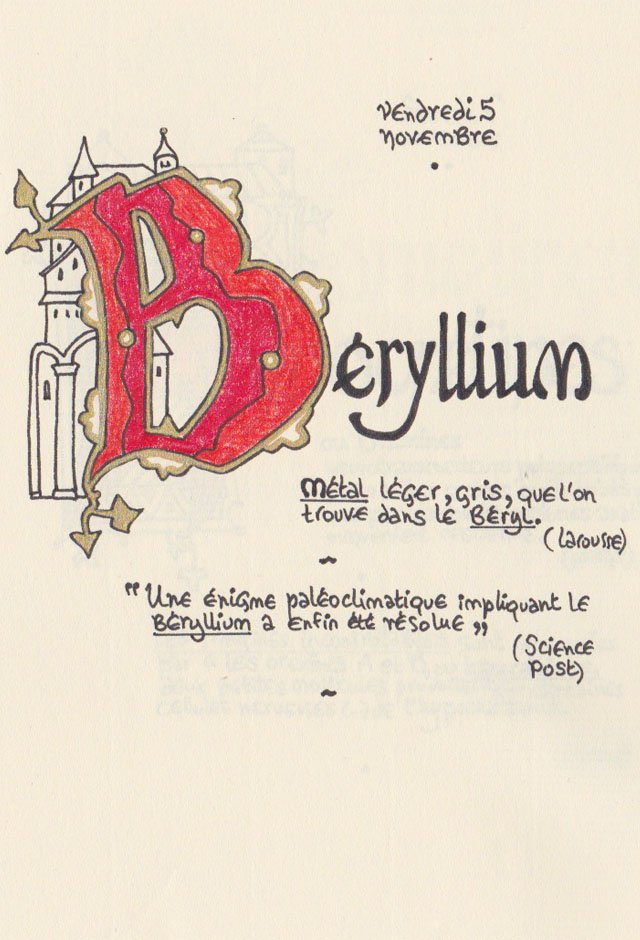 Vendredi 5
novembre
Béryllium
Métal léger, gris, que l'on
trouve dans le Béryl.
(Larousse)
~
"Une énigme paléoclimatique implique le
Béryllium a enfin été résolue"
(Science
Post)
~